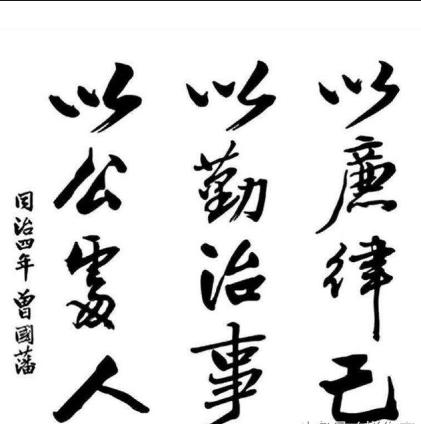 以廉律己
以勤治事
以公處人
同治四年曾國藩